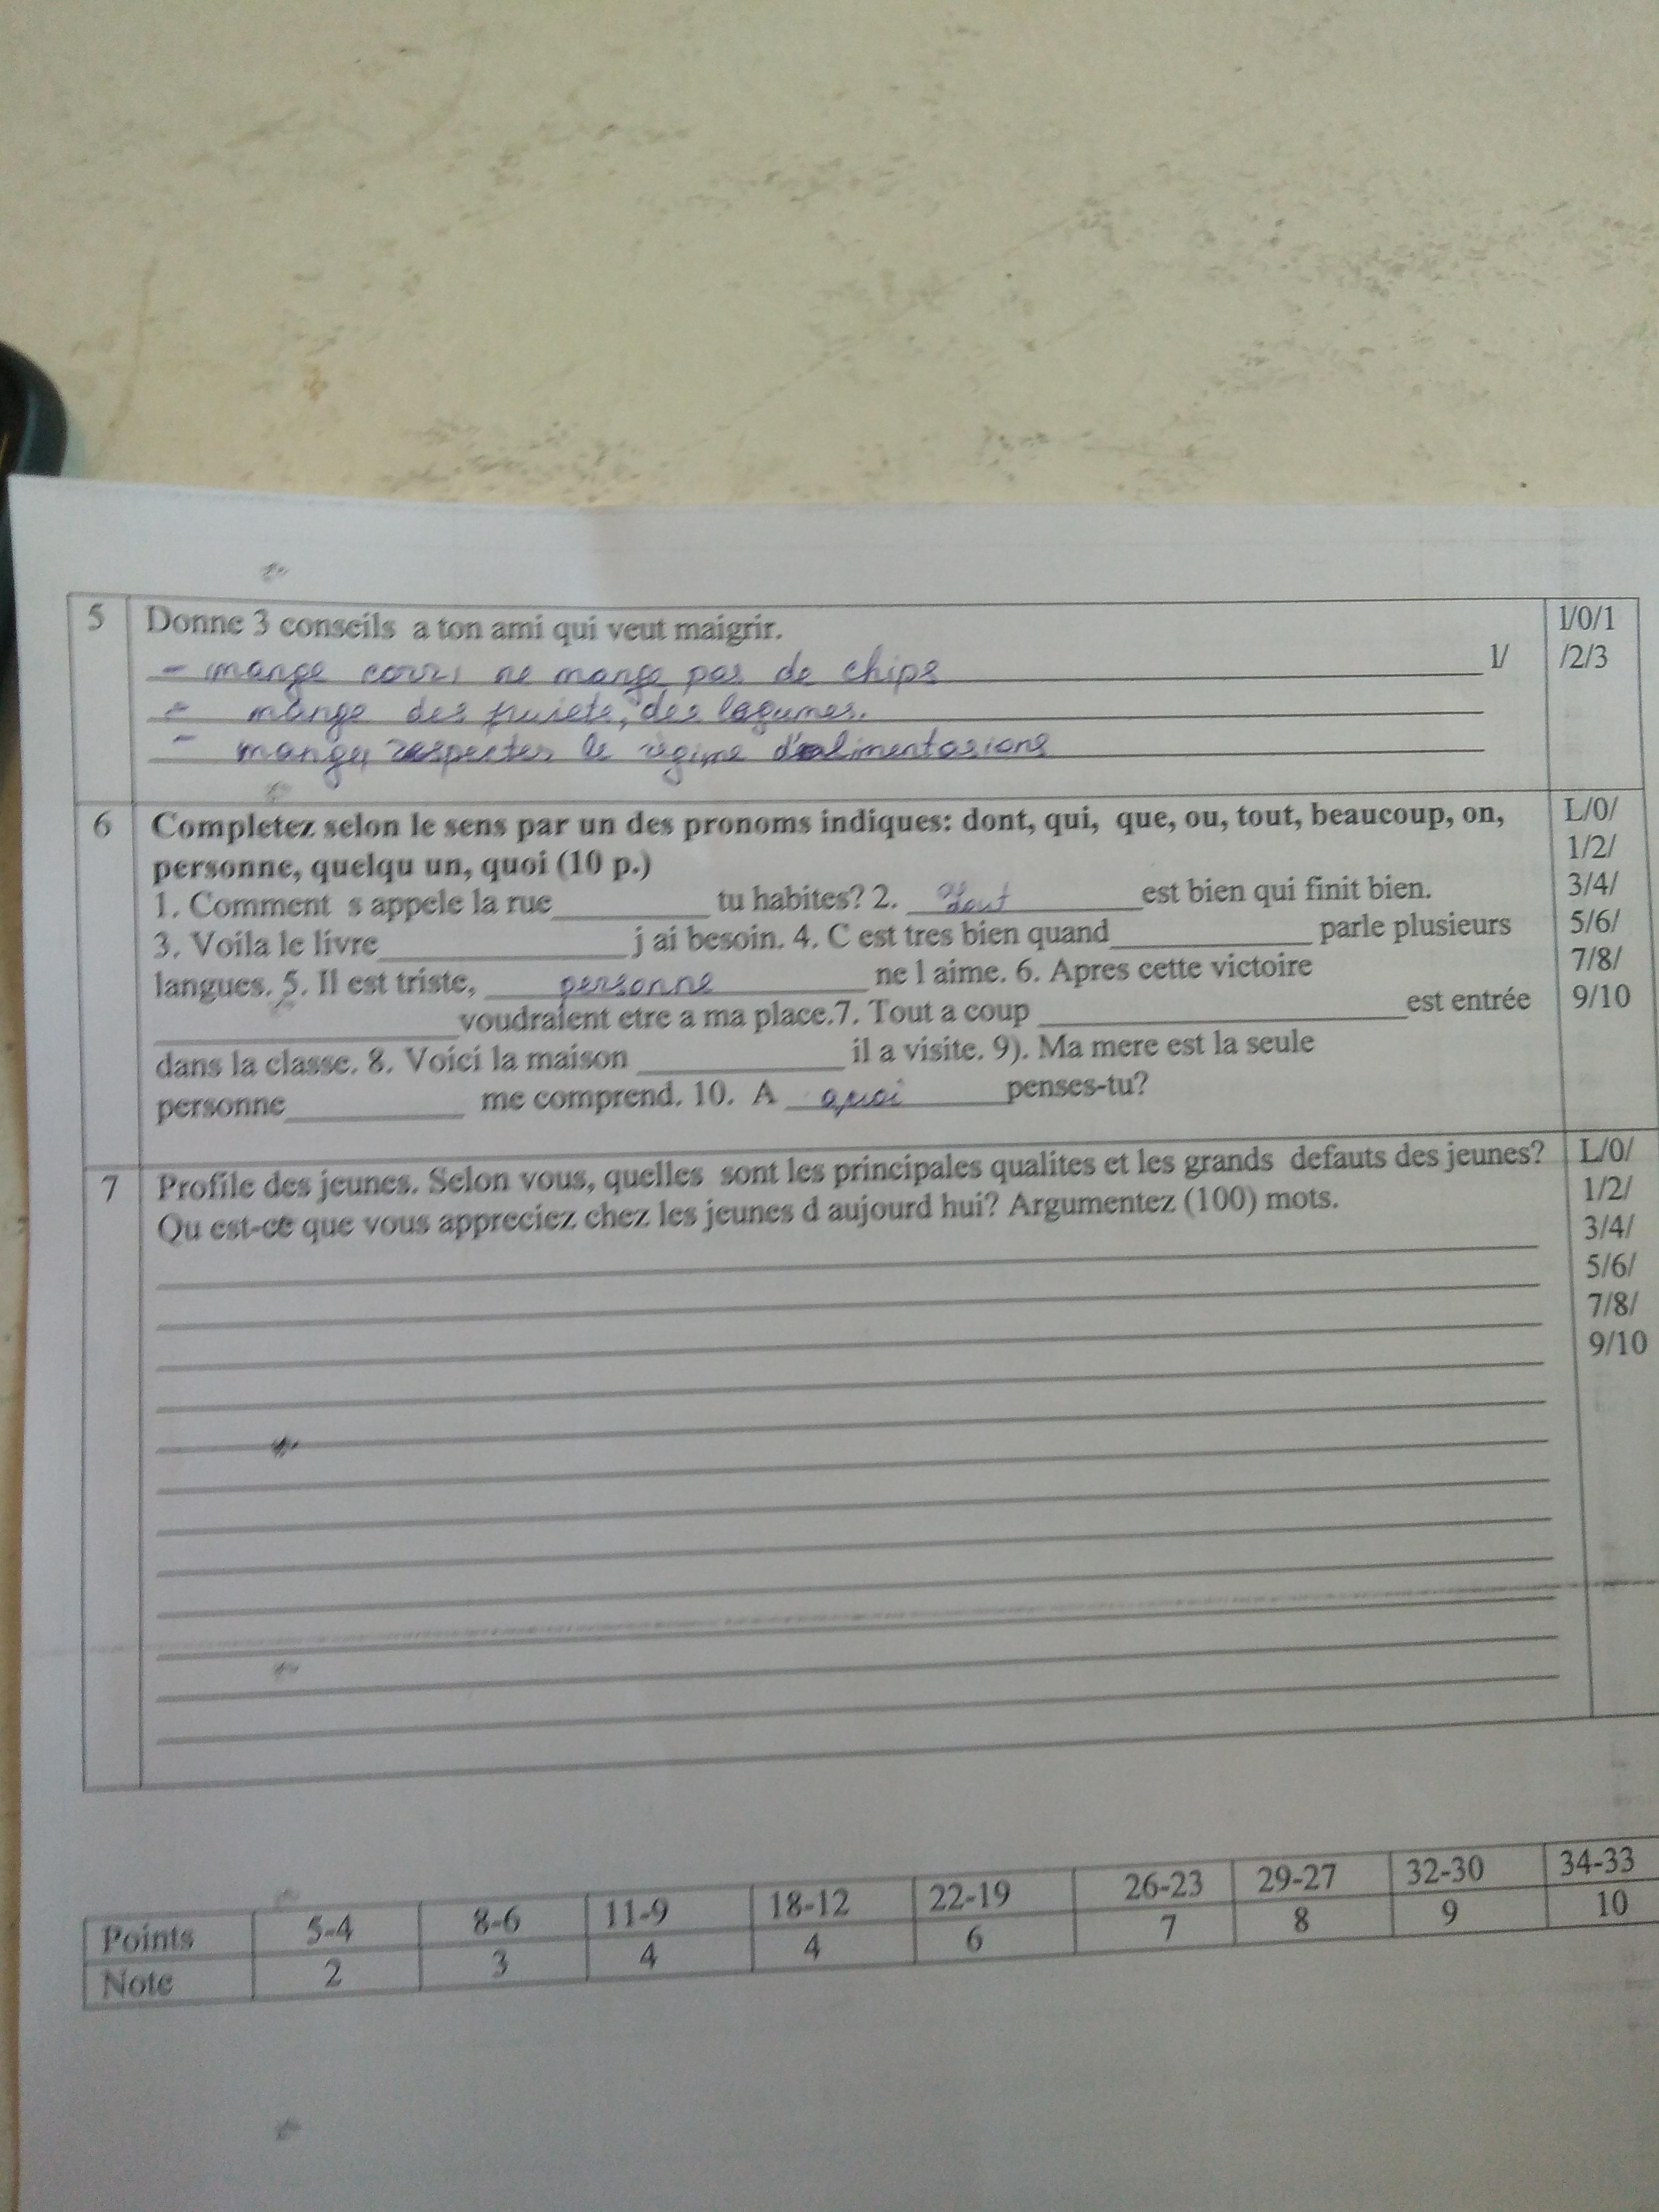 5 Donne 3 conseils a ton ami qui veut maigrir. 1/0/1
- mange ne mange pas de chips 1/ /2/3
- mange des des legumes.
- mange, respecter le régime
6 Completez selon le sens par un des pronoms indiques: dont, qui, que, ou, tout, beaucoup, on, L/0/
personne, quelqu un, quoi (10 p.) 1/2/
1. Comment s appele la rue__________ tu habites? 2. tout est bien qui finit bien. 3/4/
3. Voila le livre_______________j ai besoin. 4. C est tres bien quand____________ parle plusieurs 5/6/
langues. 5. Il est triste, personne ne l aime. 6. Apres cette victoire 7/8/
__________________voudraient etre a ma place.7. Tout a coup ______________________est entrée 9/10
dans la classe. 8. Voici la maison _____________il a visite. 9). Ma mere est la seule
personne___________ me comprend. 10. A quoi penses-tu?
7 Profile des jeunes. Selon vous, quelles sont les principales qualites et les grands defauts des jeunes? L/0/
Qu est-ce que vous appreciez chez les jeunes d aujourd hui? Argumentez (100) mots. 1/2/
3/4/
5/6/
7/8/
9/10
Points 5-4 8-6 11-9 18-12 22-19 26-23 29-27 32-30 34-33
Note 2 3 4 4 6 7 8 9 10